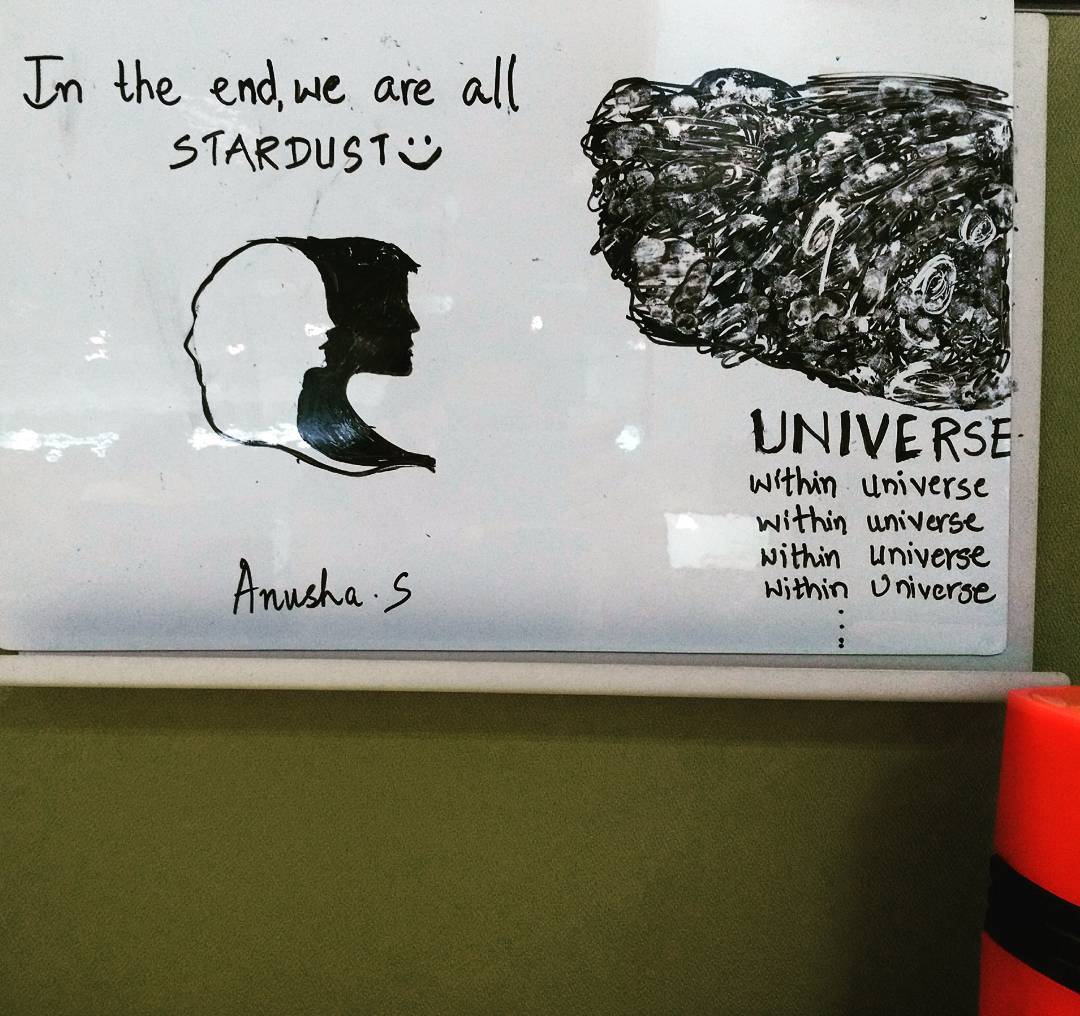 In the end, we are all
STARDUST
Anusha. S
UNIVERSE
within universe
within universe
within universe
within Universe